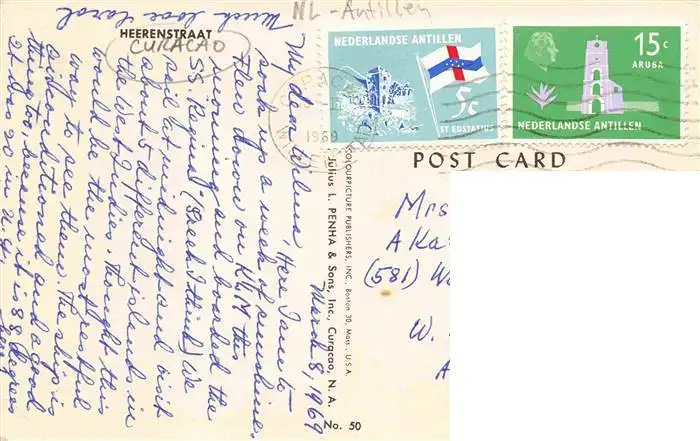 NL-Antillen
HEERENSTRAAT
CURACAO
NEDERLANDSE ANTILLEN
5c
ST EUSTATIUS
15c
ARUBA
NEDERLANDSE ANTILLEN
CURACAO
1969
POST CARD
March 8, 1969
My dear Wilma, Here I am to
soak up a week of sunshine.
Flew down on KLM this
morning and boarded the
SS Regina (Greek I think) We
sail at midnight and visit
about 5 different islands in
the West Indies. Thought this
would be the most restful
way to see them. The ship is
airconditioned and a good
thing to, because it is 88 degrees
It was 20 in N.Y.
Much love Carol
COLOURPICTURE PUBLISHERS, INC., Boston 30, Mass., U.S.A.
Julius L. PENHA & Sons, Inc., Curacao, N. A.
No. 50
Mrs
A Ka
(581) W
W.
A